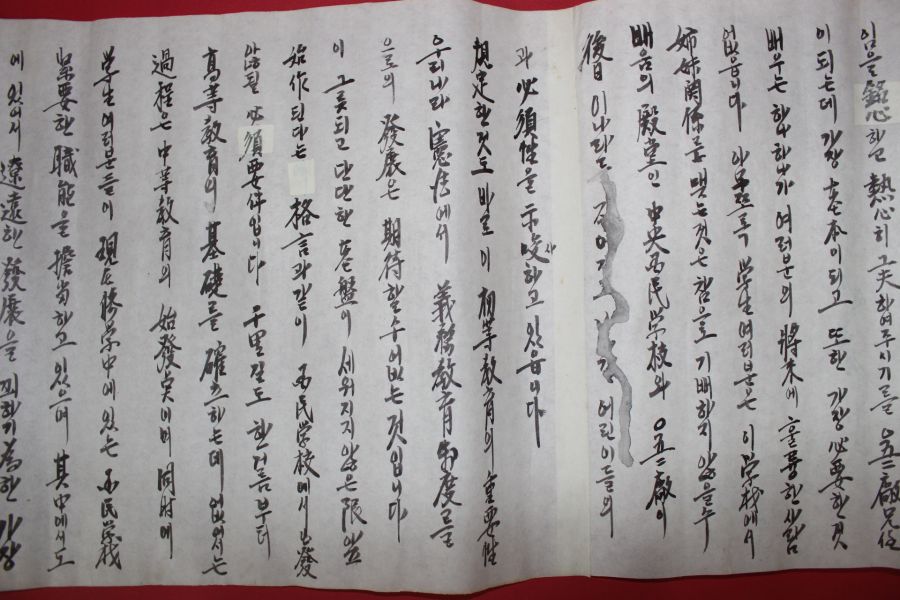 임을 銘心하고 熱心히 工夫하여주시기를 〇五二廠兄任
이 되는데 가장 基本이되고 또한 가장 必要한것
배우는 하나하나가 여러분의 將來에 훌륭한사람
없읍니다 아무쪼록 學生여러분은 이 學校에서
姉妹関係를 맺는것은 참으로 기뻐하지 않을수
배움의 殿堂인 中央国民学校와 〇五二廠이
後日 이나라를 어린이들의
과 必須性을 示唆하고 있읍니다
規定한것도 바로 이 初等教育의 重要性
우리나라 憲法에서 義務教育制度를
으로의 發展은 期待할수없는것입니다
이 그릇되고 단단한 基盤이 세워지지 않은限 앞
始作된다는 格言과같이 国民學校에서 出發
않될 必須要件입니다 千里길도 한거름부터
高等教育의 基礎를 確立하는데 없어서는
過程은 中等教育의 始發点이며 同時에
學生여러분들이 現在修学中에있는 国民学校
緊要한 職能을 擔当하고 있으며 其中에서도
에 있어서 遼遠한 發展을 꾀하기爲한 가장